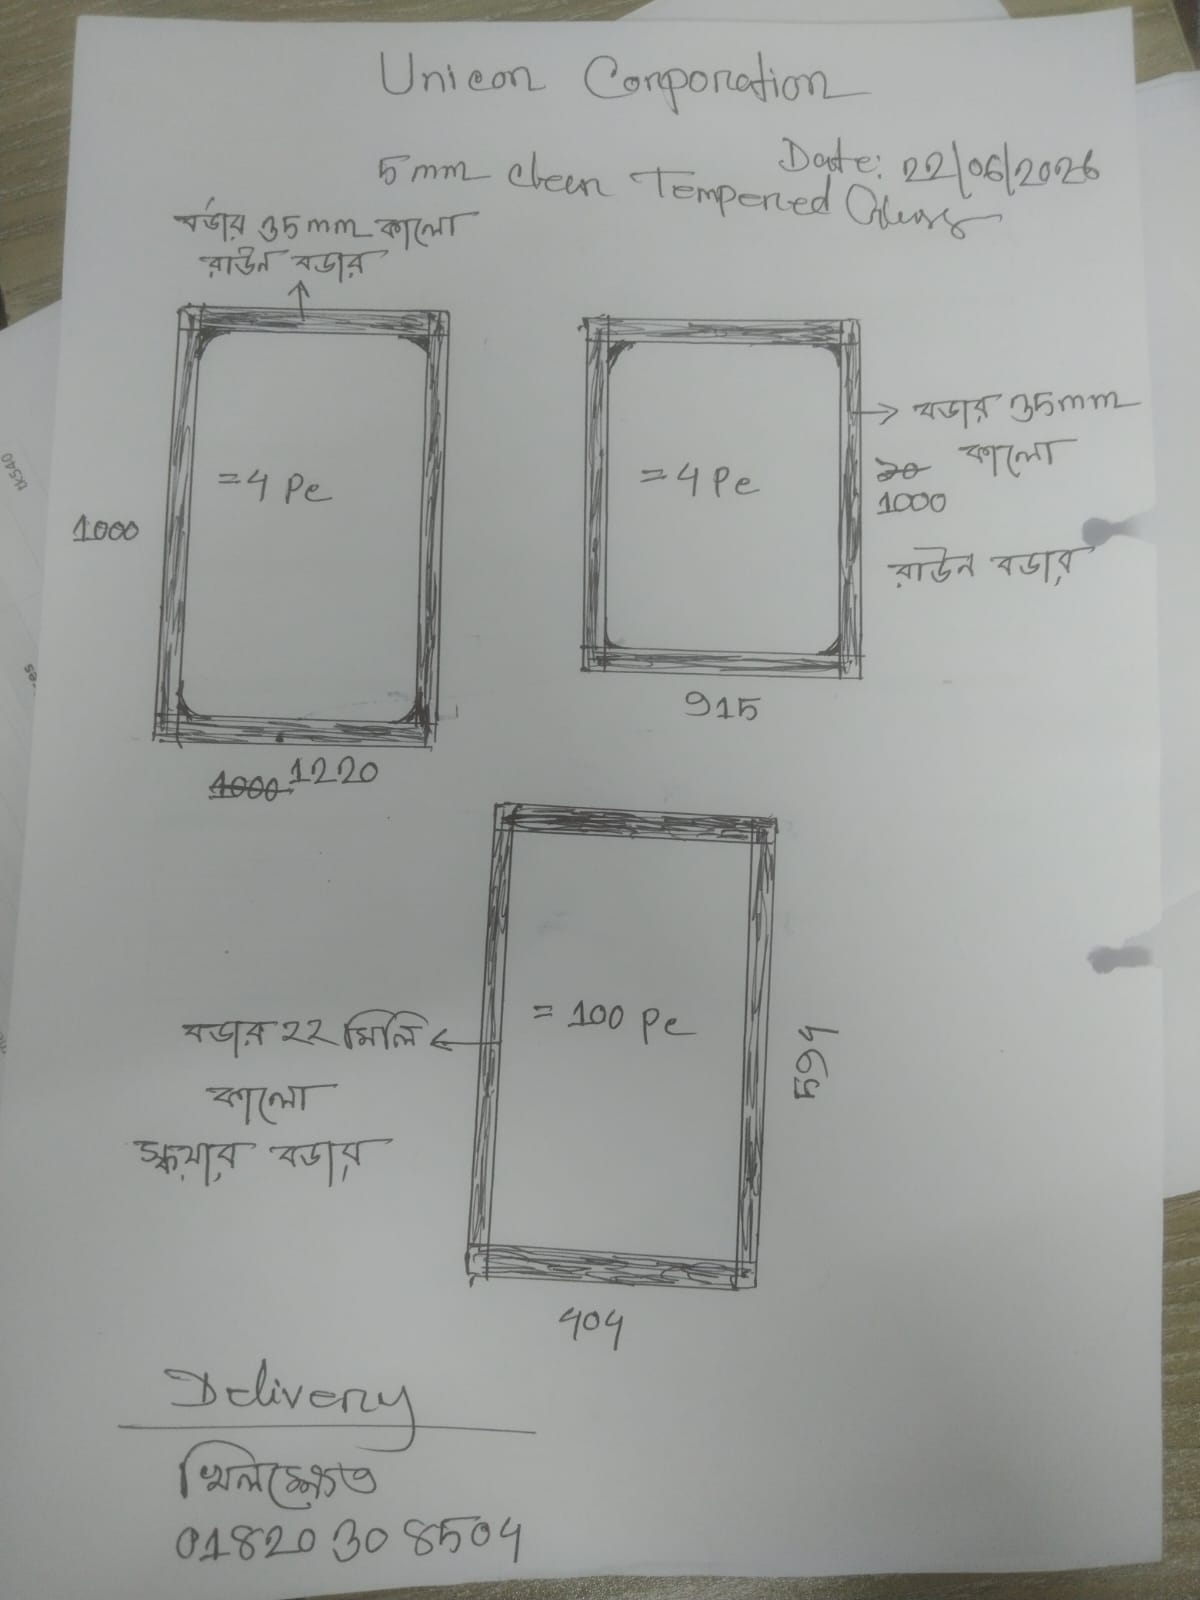 Unicon Corporation
Date: 22/06/2026
5mm Clear Tempered Glass
বর্ডার 35mm কালো
রাউন বডার
= 4 Pc
1000
1000 1220
= 4 Pc
বডার 35mm
কালো
1000
রাউন বডার
915
= 100 Pc
বডার ২২ মিলি
কালো
স্কয়ার বডার
594
404
Delivery
খিলক্ষেত
01820 30 8504